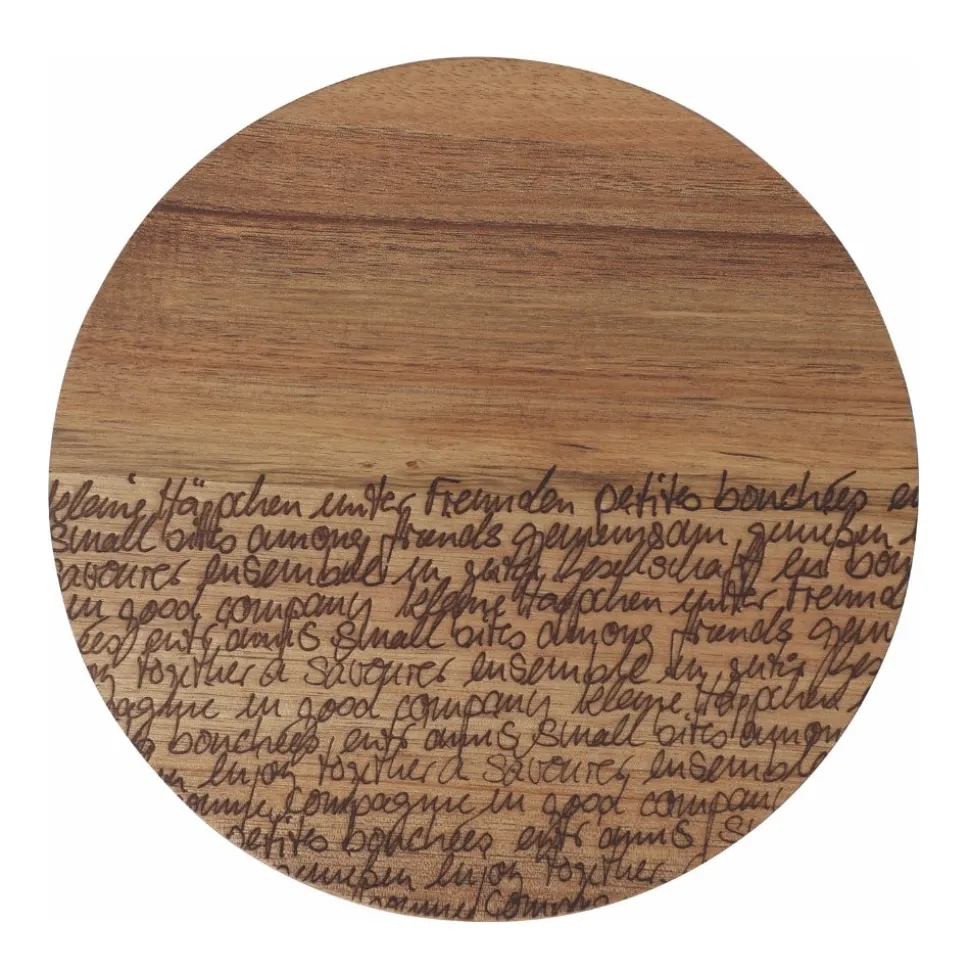 kleine Häppchen unter Freunden petites bouchées en
small bites among friends gemeinsam genießen
savourer ensemble in guter Gesellschaft en bon
in good company kleine Häppchen unter Freund
ées entre amis small bites among friends gem
joy together à savourer ensemble in guter Ges
pagnie in good company kleine Häppchen
bouchées entre amis small bites among
enjoy together à savourer ensemble
bonne compagnie in good company
petites bouchées entre amis s
genießen enjoy together
bonne compa